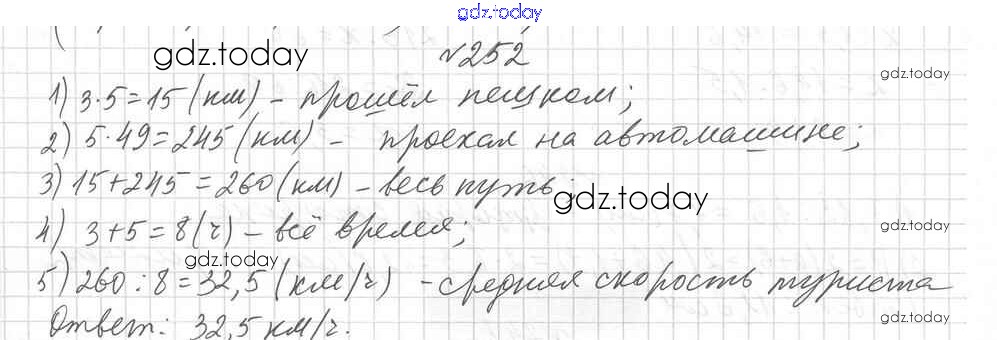 gdz.today
№252
gdz.today
gdz.today
1) 3·5=15 (км) - прошёл пешком;
2) 5·49=245 (км) - проехал на автомашине;
3) 15+245=260 (км) - весь путь;
gdz.today
4) 3+5=8 (ч) - всё время;
gdz.today
gdz.today
5) 260:8=32,5 (км/ч) - средняя скорость туриста
Ответ: 32,5 км/ч.
gdz.today